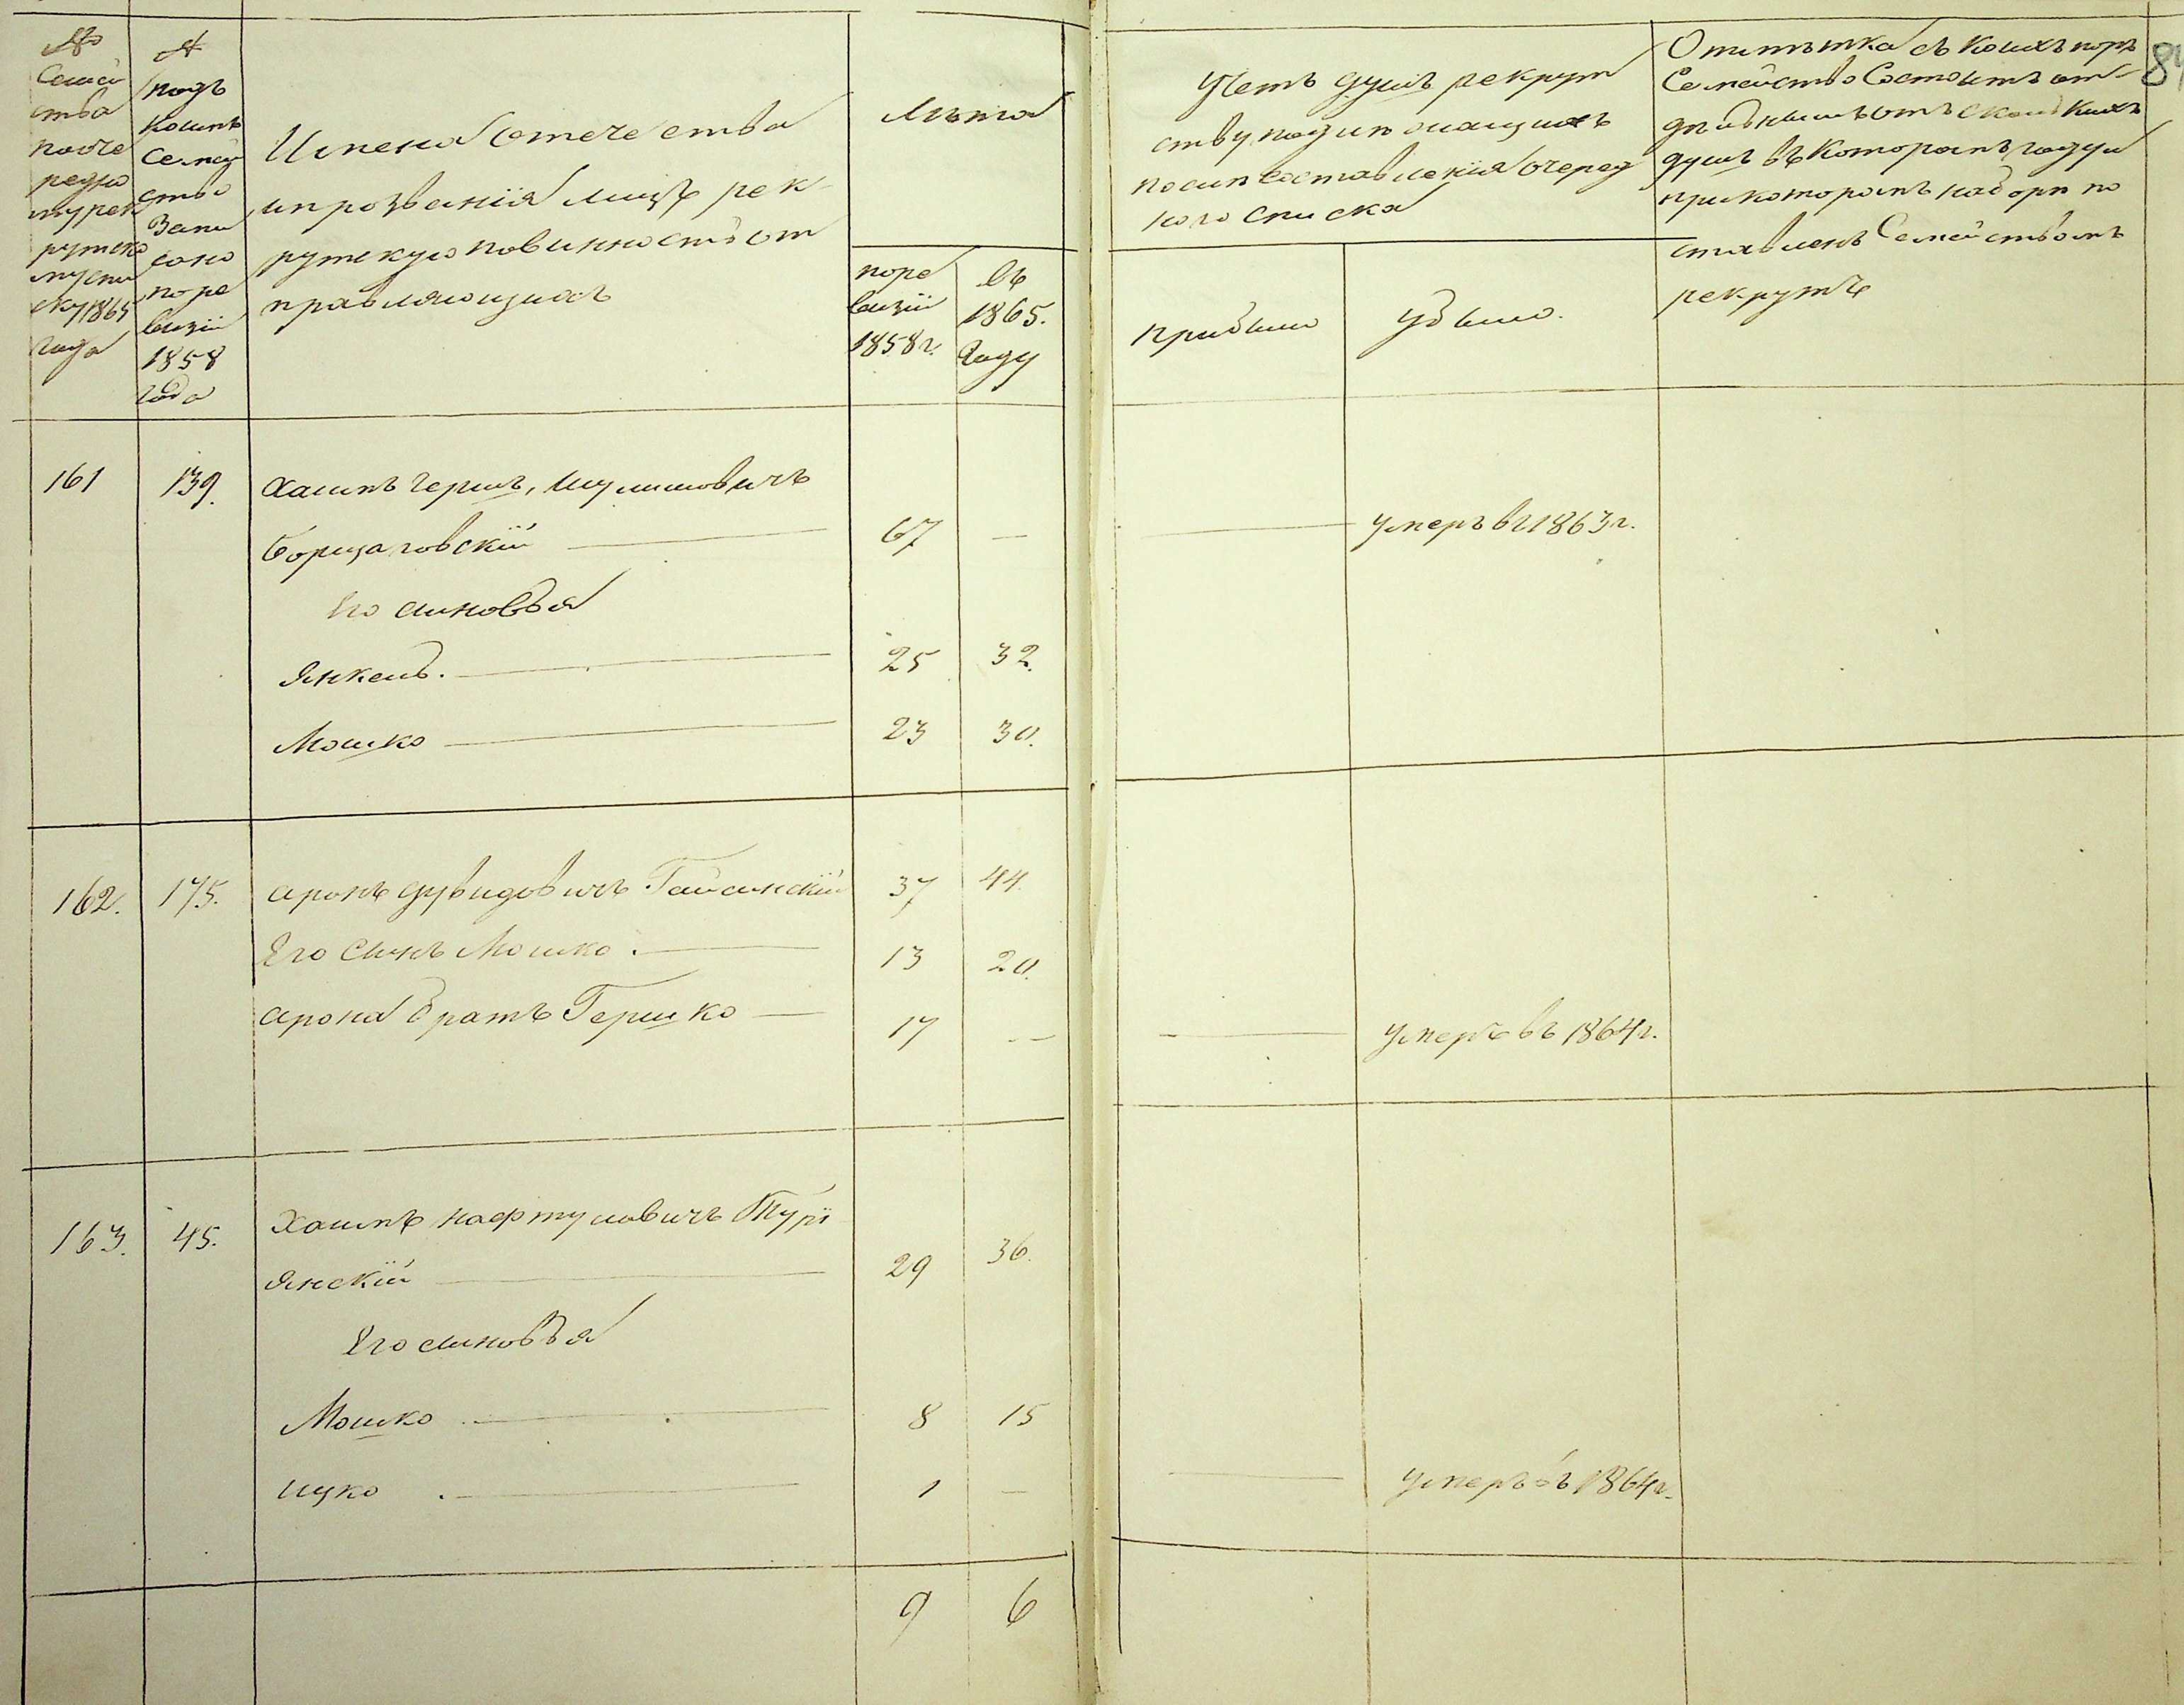 №
Семей
ства
по оче
редно
му рек
рутско
му спи
ску 1865
года
№
подъ
коимъ
семей
ство
запи
сано
по ре
визіи
1858
года
Имена Отечества
и прозванія лицъ рек
рутскую повинность от
правляющихъ
Лѣта
по ре
визіи
1858 г.
въ
1865.
Году
Учетъ душъ рекрут
ству подлѣжащихъ
послѣ составленія очеред
ного списка
прибыло
убыло.
Отмѣтка съ коихъ поръ
Семейство Состоитъ от
дѣльнымъ отъ сколькихъ
душъ въ которомъ году и
при которомъ наборѣ по
ставленъ Семействомъ
рекрутъ
84
161
139.
Хаимъ Гершъ, Шулимовичъ
Борщаговскій
67 —
умеръ въ 1863 г.
Его сыновья
Янкель.
25 32.
Мошко
23 30.
162.
175.
Аронъ Дувидовичъ Гайсинскій
37 44.
Его Сынъ Мошко.
13 20.
Арона братъ Гершко
17 —
умеръ въ 1864 г.
163.
45.
Хаимъ Нафтуловичъ Турі
янскій
29 36.
Его сыновья
Мошко
8 15
Ицко
1 —
умеръ въ 1864 г.
9 6